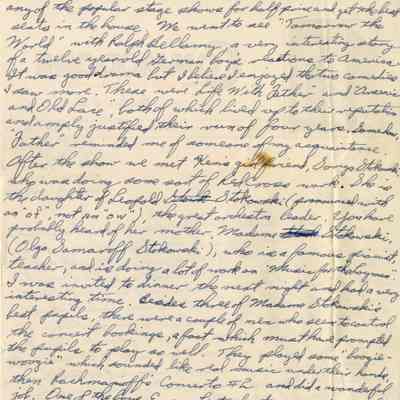 any of the popular stage shows for half price and get the best
seats in the house. We went to see "Tomorrow the
World" with Ralph Bellamy, a very interesting story
of a twelve year old German boys reactions to America.
It was good drama but I believe I enjoyed the two comedies
I saw more. These were "Life With Father" and "Arsenic
and Old Lace", both of which lived up to their reputation
and amply justified their runs of four years. Somehow,
Father reminded me of someone of my acquaintance.
After the show we met girl friend, Sonya Stokowski
who was doing some sort of Red Cross work. She is
the daughter of Leopold Stokowski (pronounced with
as "of", not, as "ow"), the great orchestra leader. You have
probably heard of her mother Madame Stokowski,
(Olga Samaroff Stokowski), who is a famous pianist,
teacher, and is doing a lot of work on "Music for the laymen".
I was invited to dinner the next night and had a very
interesting time. Besides three of Madame Stokowski's
best pupils, there were a couple of men who seem to control
the concert bookings, a fact which must have prompted
the pupils to play so well. They played some "boogie-
woogie" which sounded like real music under their hands,
then Rachmaninoff's Concerto #2 and did a wonderful
job. One of the boys